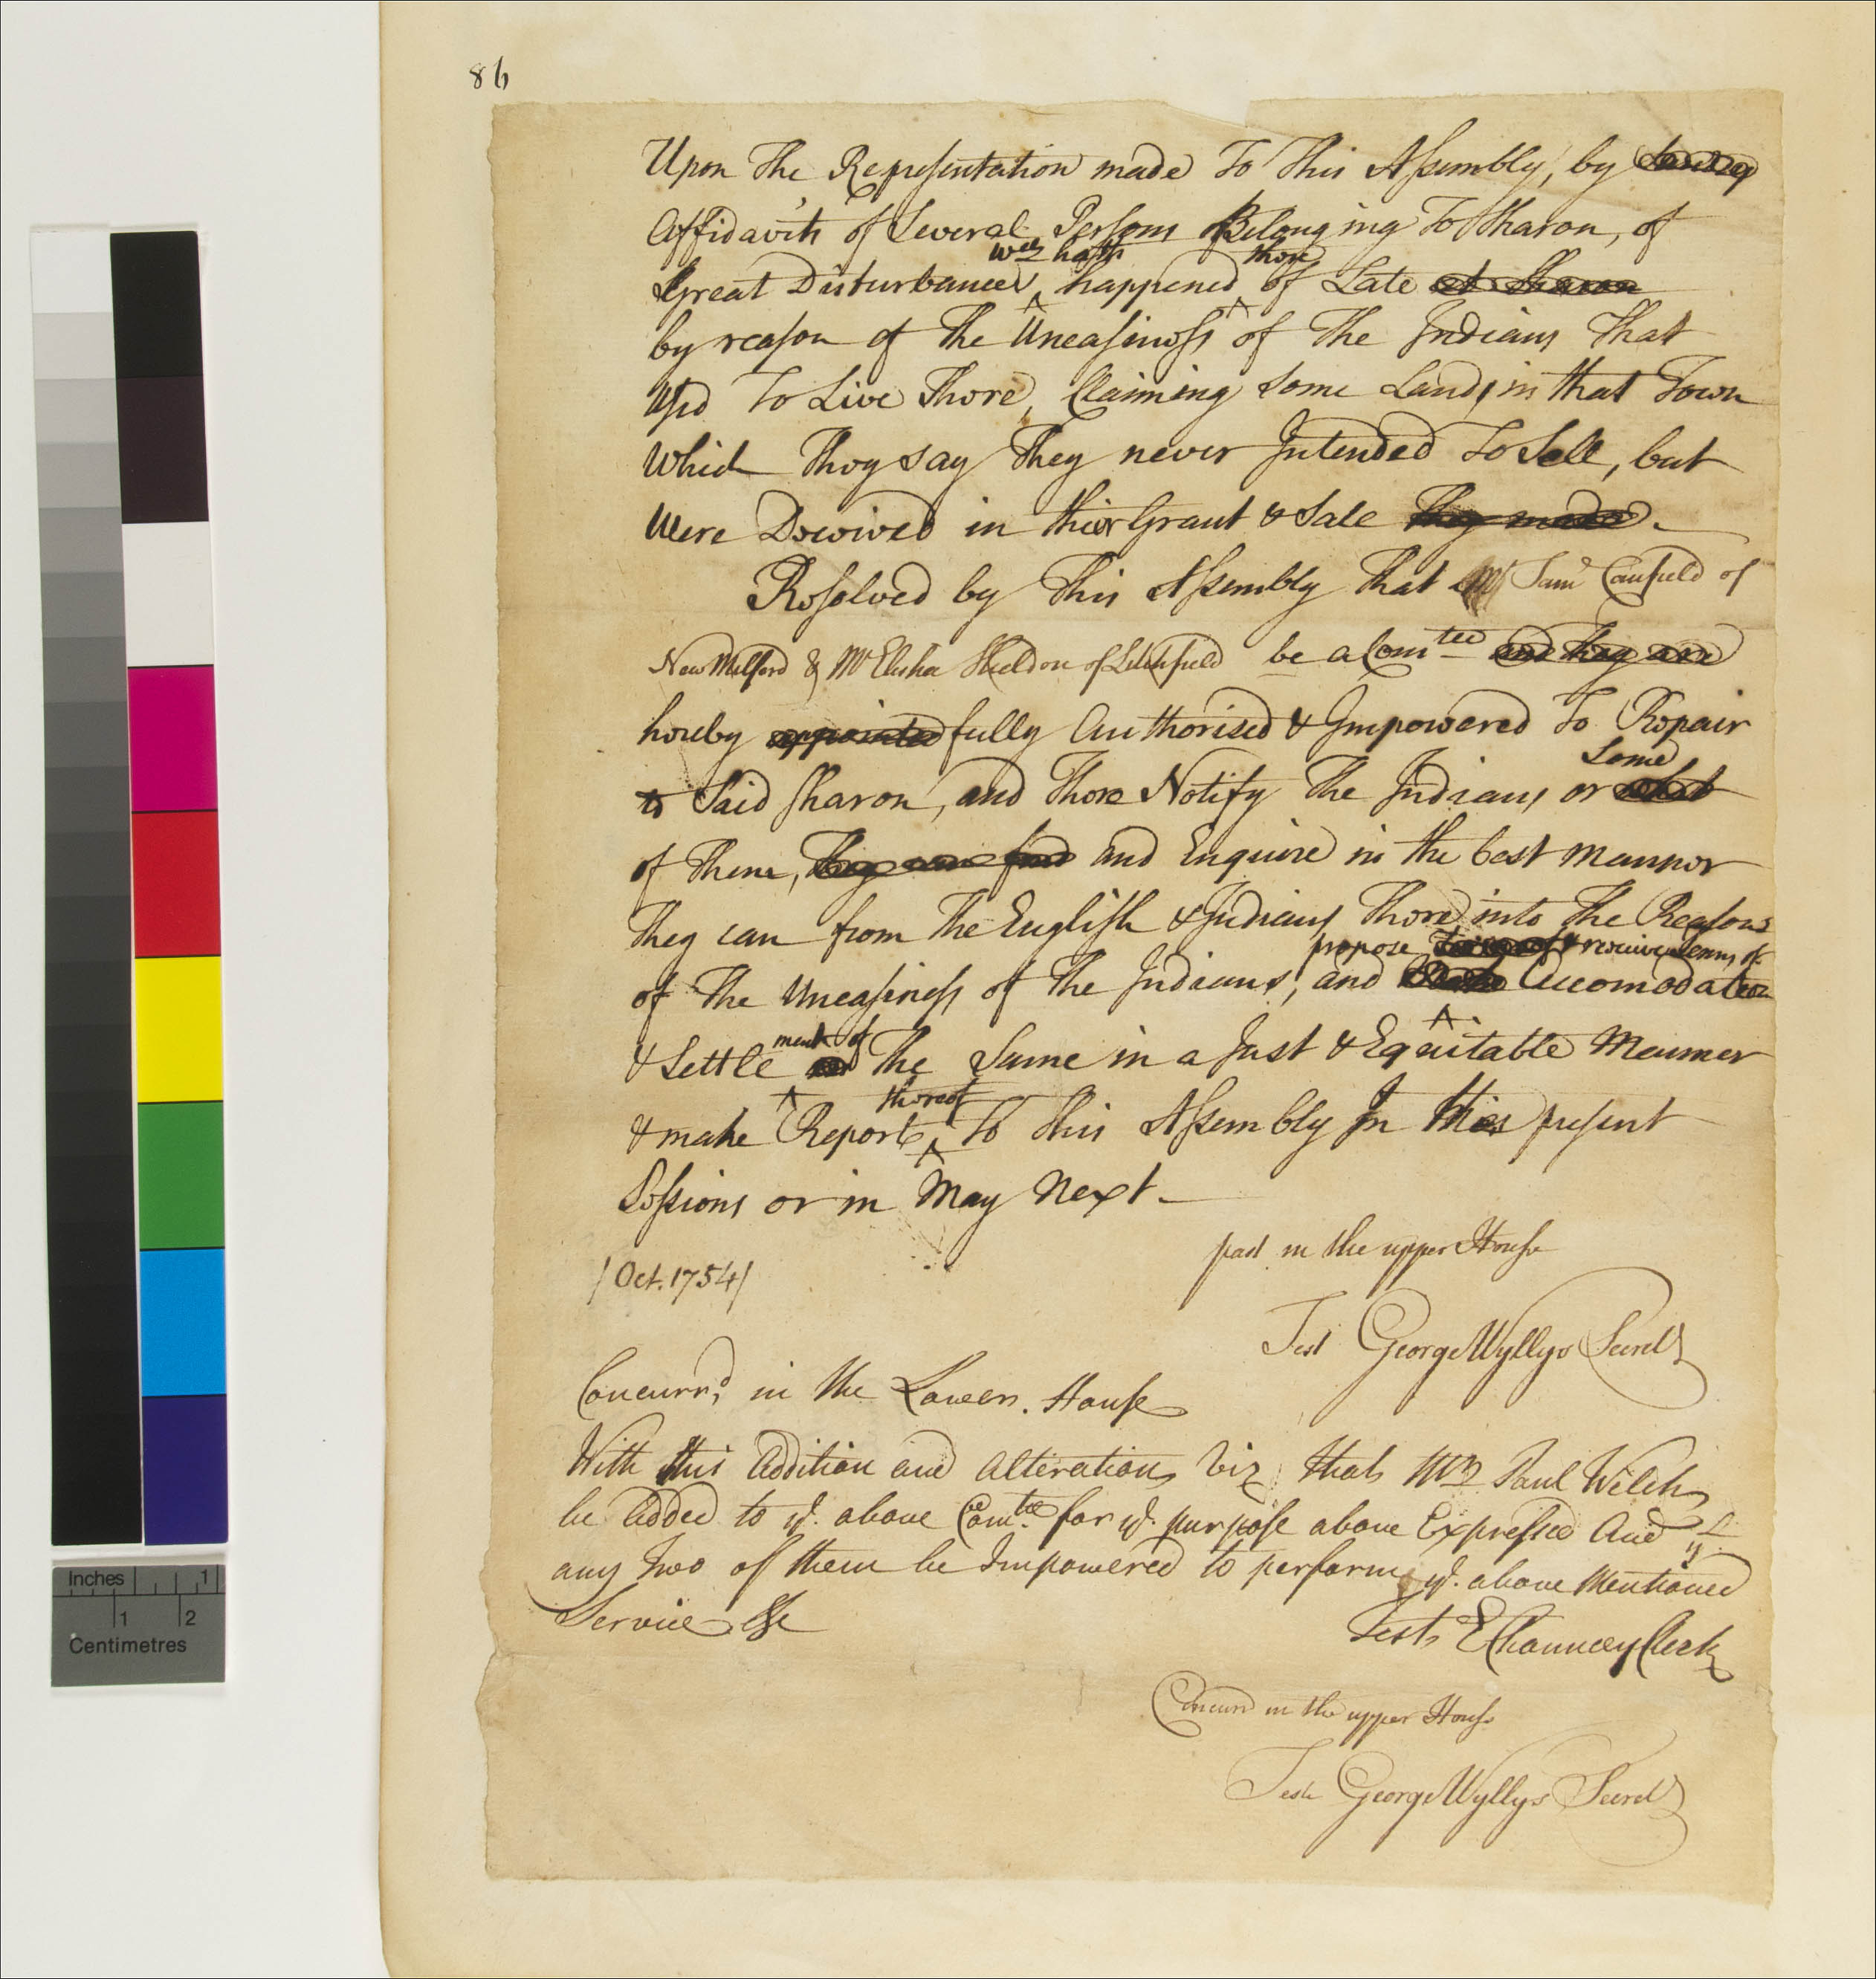 86
Upon The Representation made To This Assembly, by
Affidavits of Several Persons Belonging To Sharon, of
wch hath there
Great Disturbances happened of Late at Sharon
by reason of The Uneasiness of The Indians That
Usd To Live There, Claiming some Lands in that Town
Which They say They never Intended To Sell, but
Were Deceived in their Grant & Sale they made.
Resolved by This Assembly That Mr Saml Canfield of
New Milford & Mr Elisha Sheldon of Litchfield be a Comtee and they are
hereby appointed fully Authorised & Impowered To Repair
Some
to Said Sharon, and There Notify The Indians or
of Them, and Enquire in the best manner
They can from The English & Indians There into The Reasons
propose & receive Terms of
of The Uneasiness of The Indians, and Accomodation
ment of
& Settle The Same in a Just & Equitable Manner
thereof
& make Report To This Assembly In this present
Sessions or in May Next.
past in the upper House
/Oct. 1754/
Test George Wyllys Secrety
Concurrd in the Lower House
With this Addition and Alteration, Viz that Mr Paul Welch
be Added to ye above Comtee for ye purpose above Expressed And yt
any two of them be Impowered to perform ye above Mentioned
Service &c
Test, E Chauncey Clerk
Concurd in the upper House
Test George Wyllys Secrety
Inches 1
1 2
Centimetres